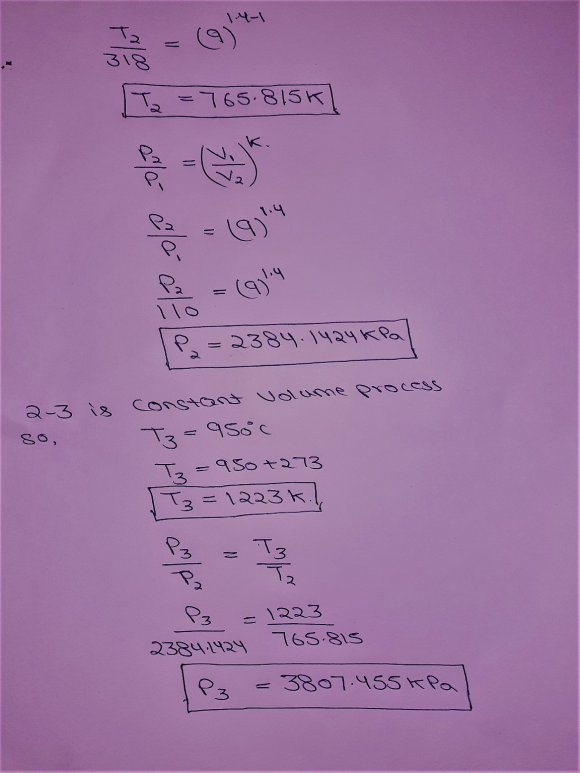 T₂/318 = (9)^1.4-1
T₂ = 765.815K
P₂/P₁ = (V₁/V₂)^K.
P₂/P₁ = (9)^1.4
P₂/110 = (9)^1.4
P₂ = 2384.1424KPa
2-3 is constant volume process
so, T₃ = 950°C
T₃ = 950+273
T₃ = 1223K.
P₃/P₂ = T₃/T₂
P₃/2384.1424 = 1223/765.815
P₃ = 3807.455KPa